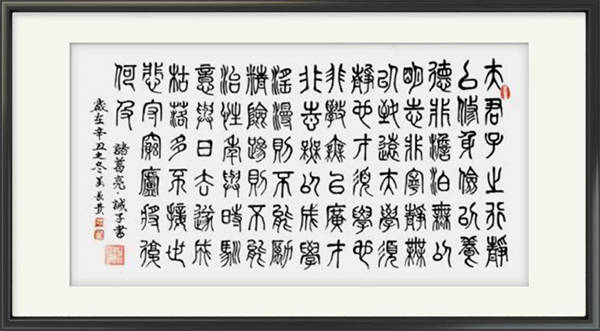 夫君子之行靜
以修身儉以養
德非澹泊無以
明志非寧靜無
以致遠夫學須
靜也才須學也
非學無以廣才
非志無以成學
淫漫則不能勵
精險躁則不能
治性年與時馳
意與日去遂成
枯落多不接世
悲守窮廬將復
何及
諸葛亮·誡子書
歲在辛丑之冬姜長貴